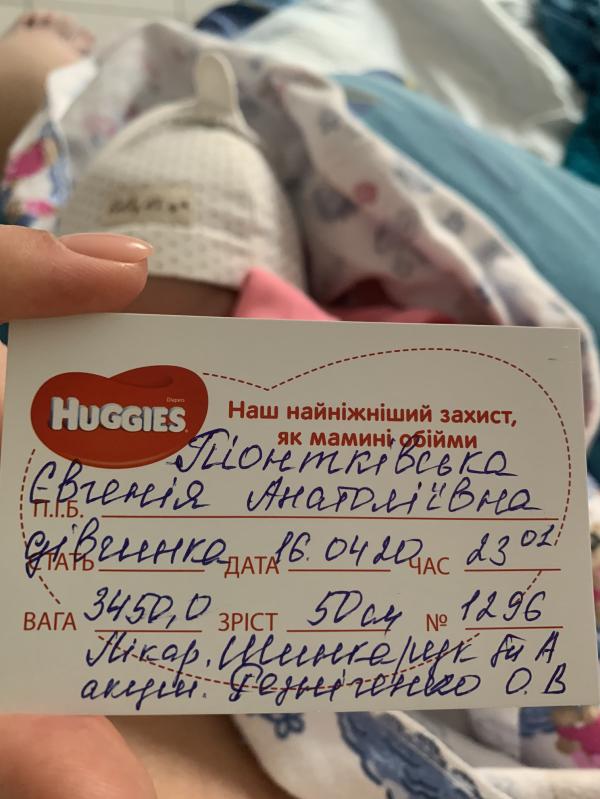 Diapers
HUGGIES
Наш найніжніший захист,
як мамині обійми
Піонтківська
П.І.Б. Євгенія Анатоліївна
СТАТЬ дівчинка ДАТА 16.04 20 ЧАС 23 01
ВАГА 3450,0 ЗРІСТ 50 см № 1296
Лікар. Шинкарук А
О. В